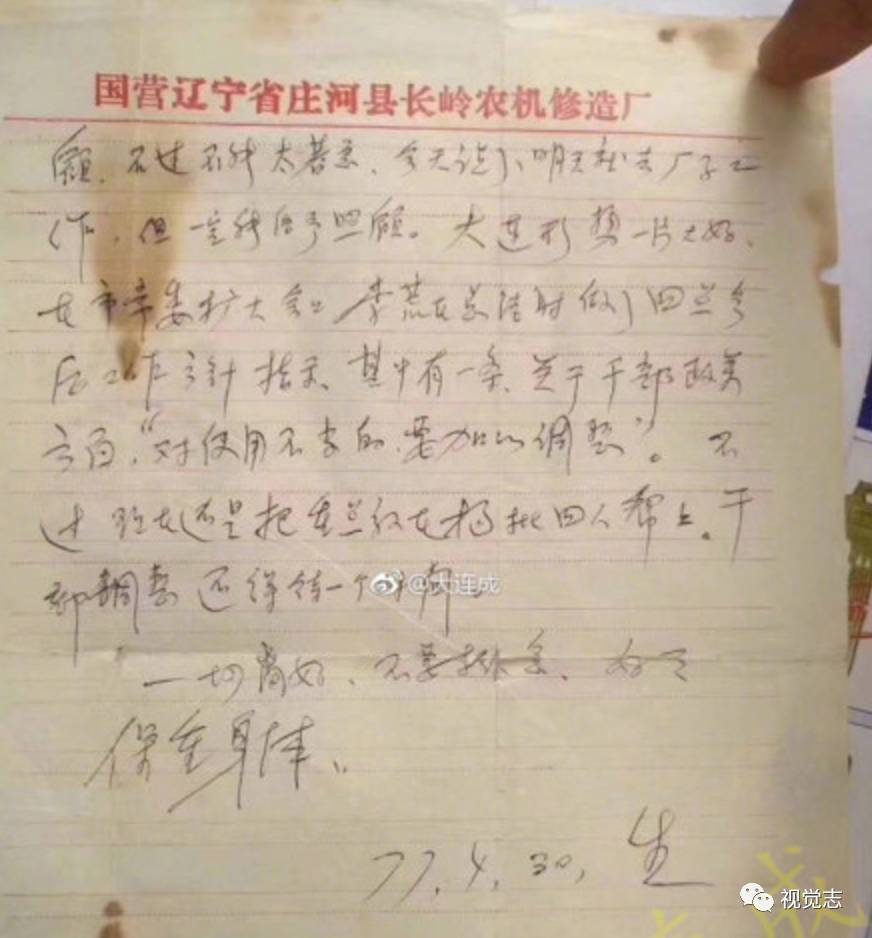 国营辽宁省庄河县长岭农机修造厂
顾，不过不能太着急，今天谈了明天就去厂子工
作，但一定能给予照顾。大连形势一片大好，
在市常委扩大会上李荒在总结时做了四点今
后工作方针指示，其中有一条，关于干部政策
方面，“对使用不当的，要加以调整”。不
过现在还是把重点放在揭批四人帮上。干
部调整还得待一个时期。
@大连成
一切皆好，不要挂念，好了
保重身体，
77.4.30，生
视觉志